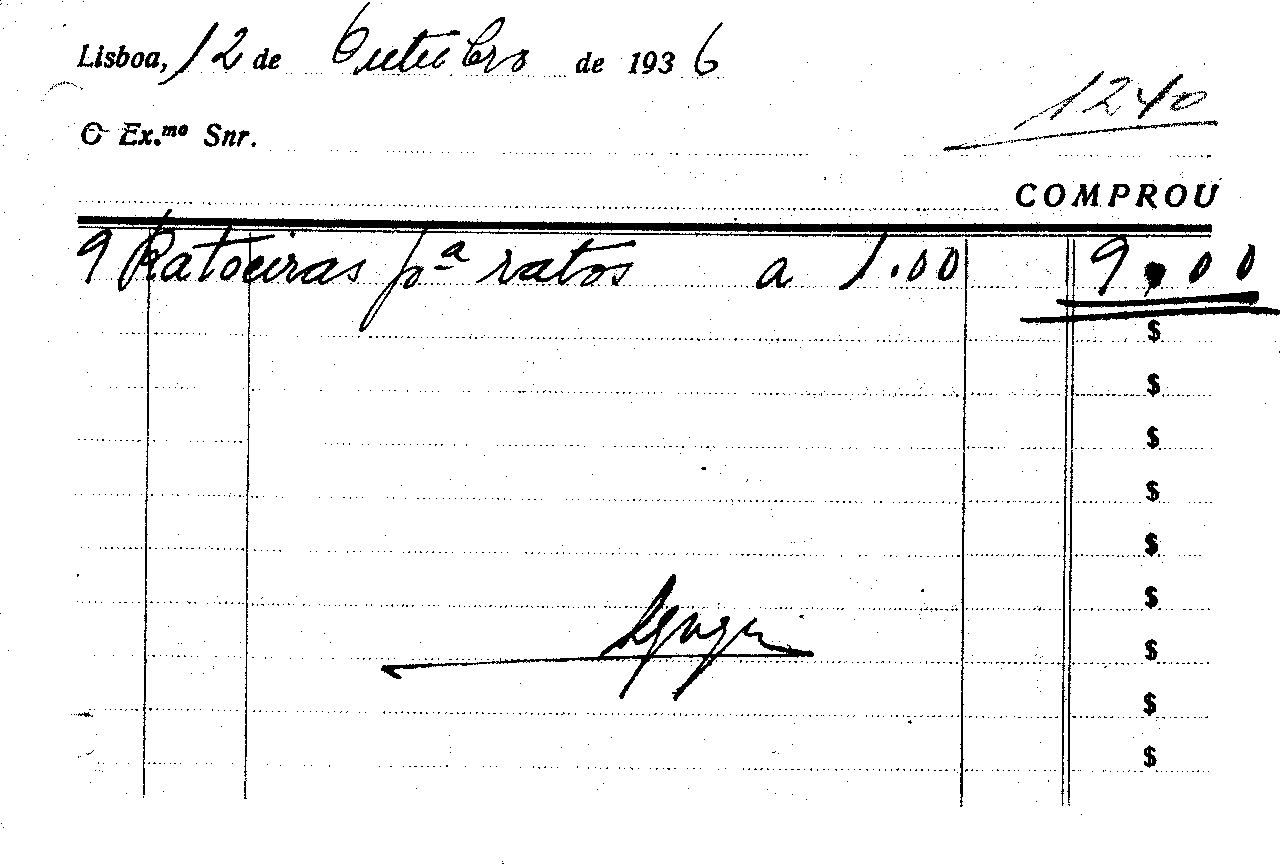 Lisboa, 12 de Outubro de 1936
1240
O Ex.mo Snr.
COMPROU
9 Ratoeiras pª ratos a 1.00 9.00
$
$
$
$
$
$
$
$
$